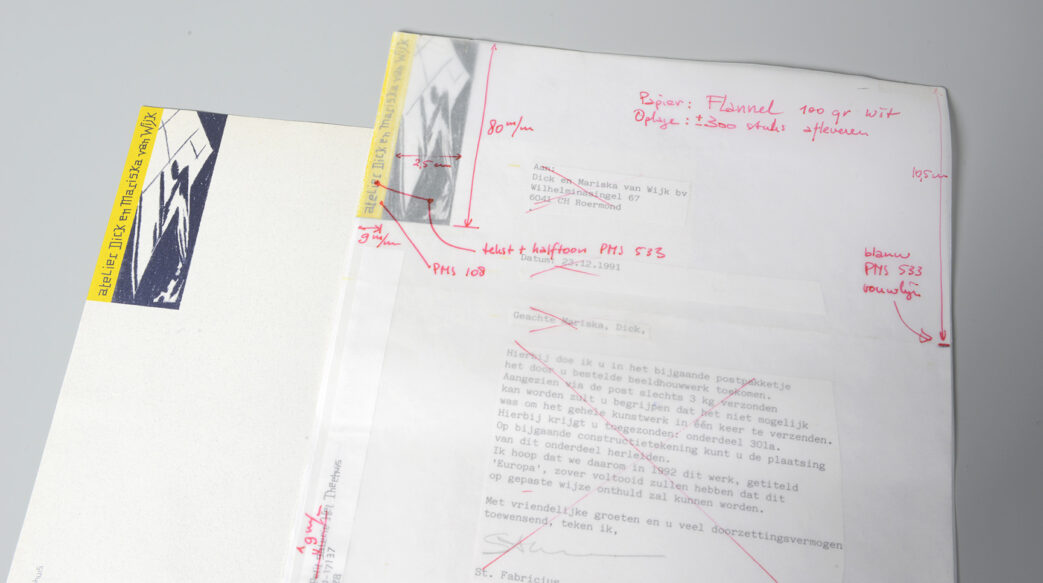 atelier Dick en Mariska van Wijk
atelier Dick en Mariska van Wijk
80 m/m
2,5 cm
9 m/m
Papier: Flannel 100 gr wit
Oplage: ± 300 stuks afleveren
10,5 cm
Aan:
Dick en Mariska van Wijk bv
Wilhelminasingel 67
6041 CH Roermond
tekst + halftoon PMS 533
PMS 108
Datum: 23.12.1991
blauw
PMS 533
vouwlijn
Geachte Mariska, Dick,
Hierbij doe ik u in het bijgaande postpakketje
het door u bestelde beeldhouwwerk toekomen.
Aangezien via de post slechts 3 kg verzonden
kan worden zult u begrijpen dat het niet mogelijk
was om het gehele kunstwerk in één keer te verzenden.
Hierbij krijgt u toegezonden: onderdeel 301a.
Op bijgaande constructietekening kunt u de plaatsing
van dit onderdeel herleiden.
Ik hoop dat we daarom in 1992 dit werk, getiteld
'Europa', zover voltooid zullen hebben dat dit
op gepaste wijze onthuld zal kunnen worden.
Met vriendelijke groeten en u veel doorzettingsvermogen
toewensend, teken ik,
St. Fabricius
9 m/m
Theehuis
-17137
huis